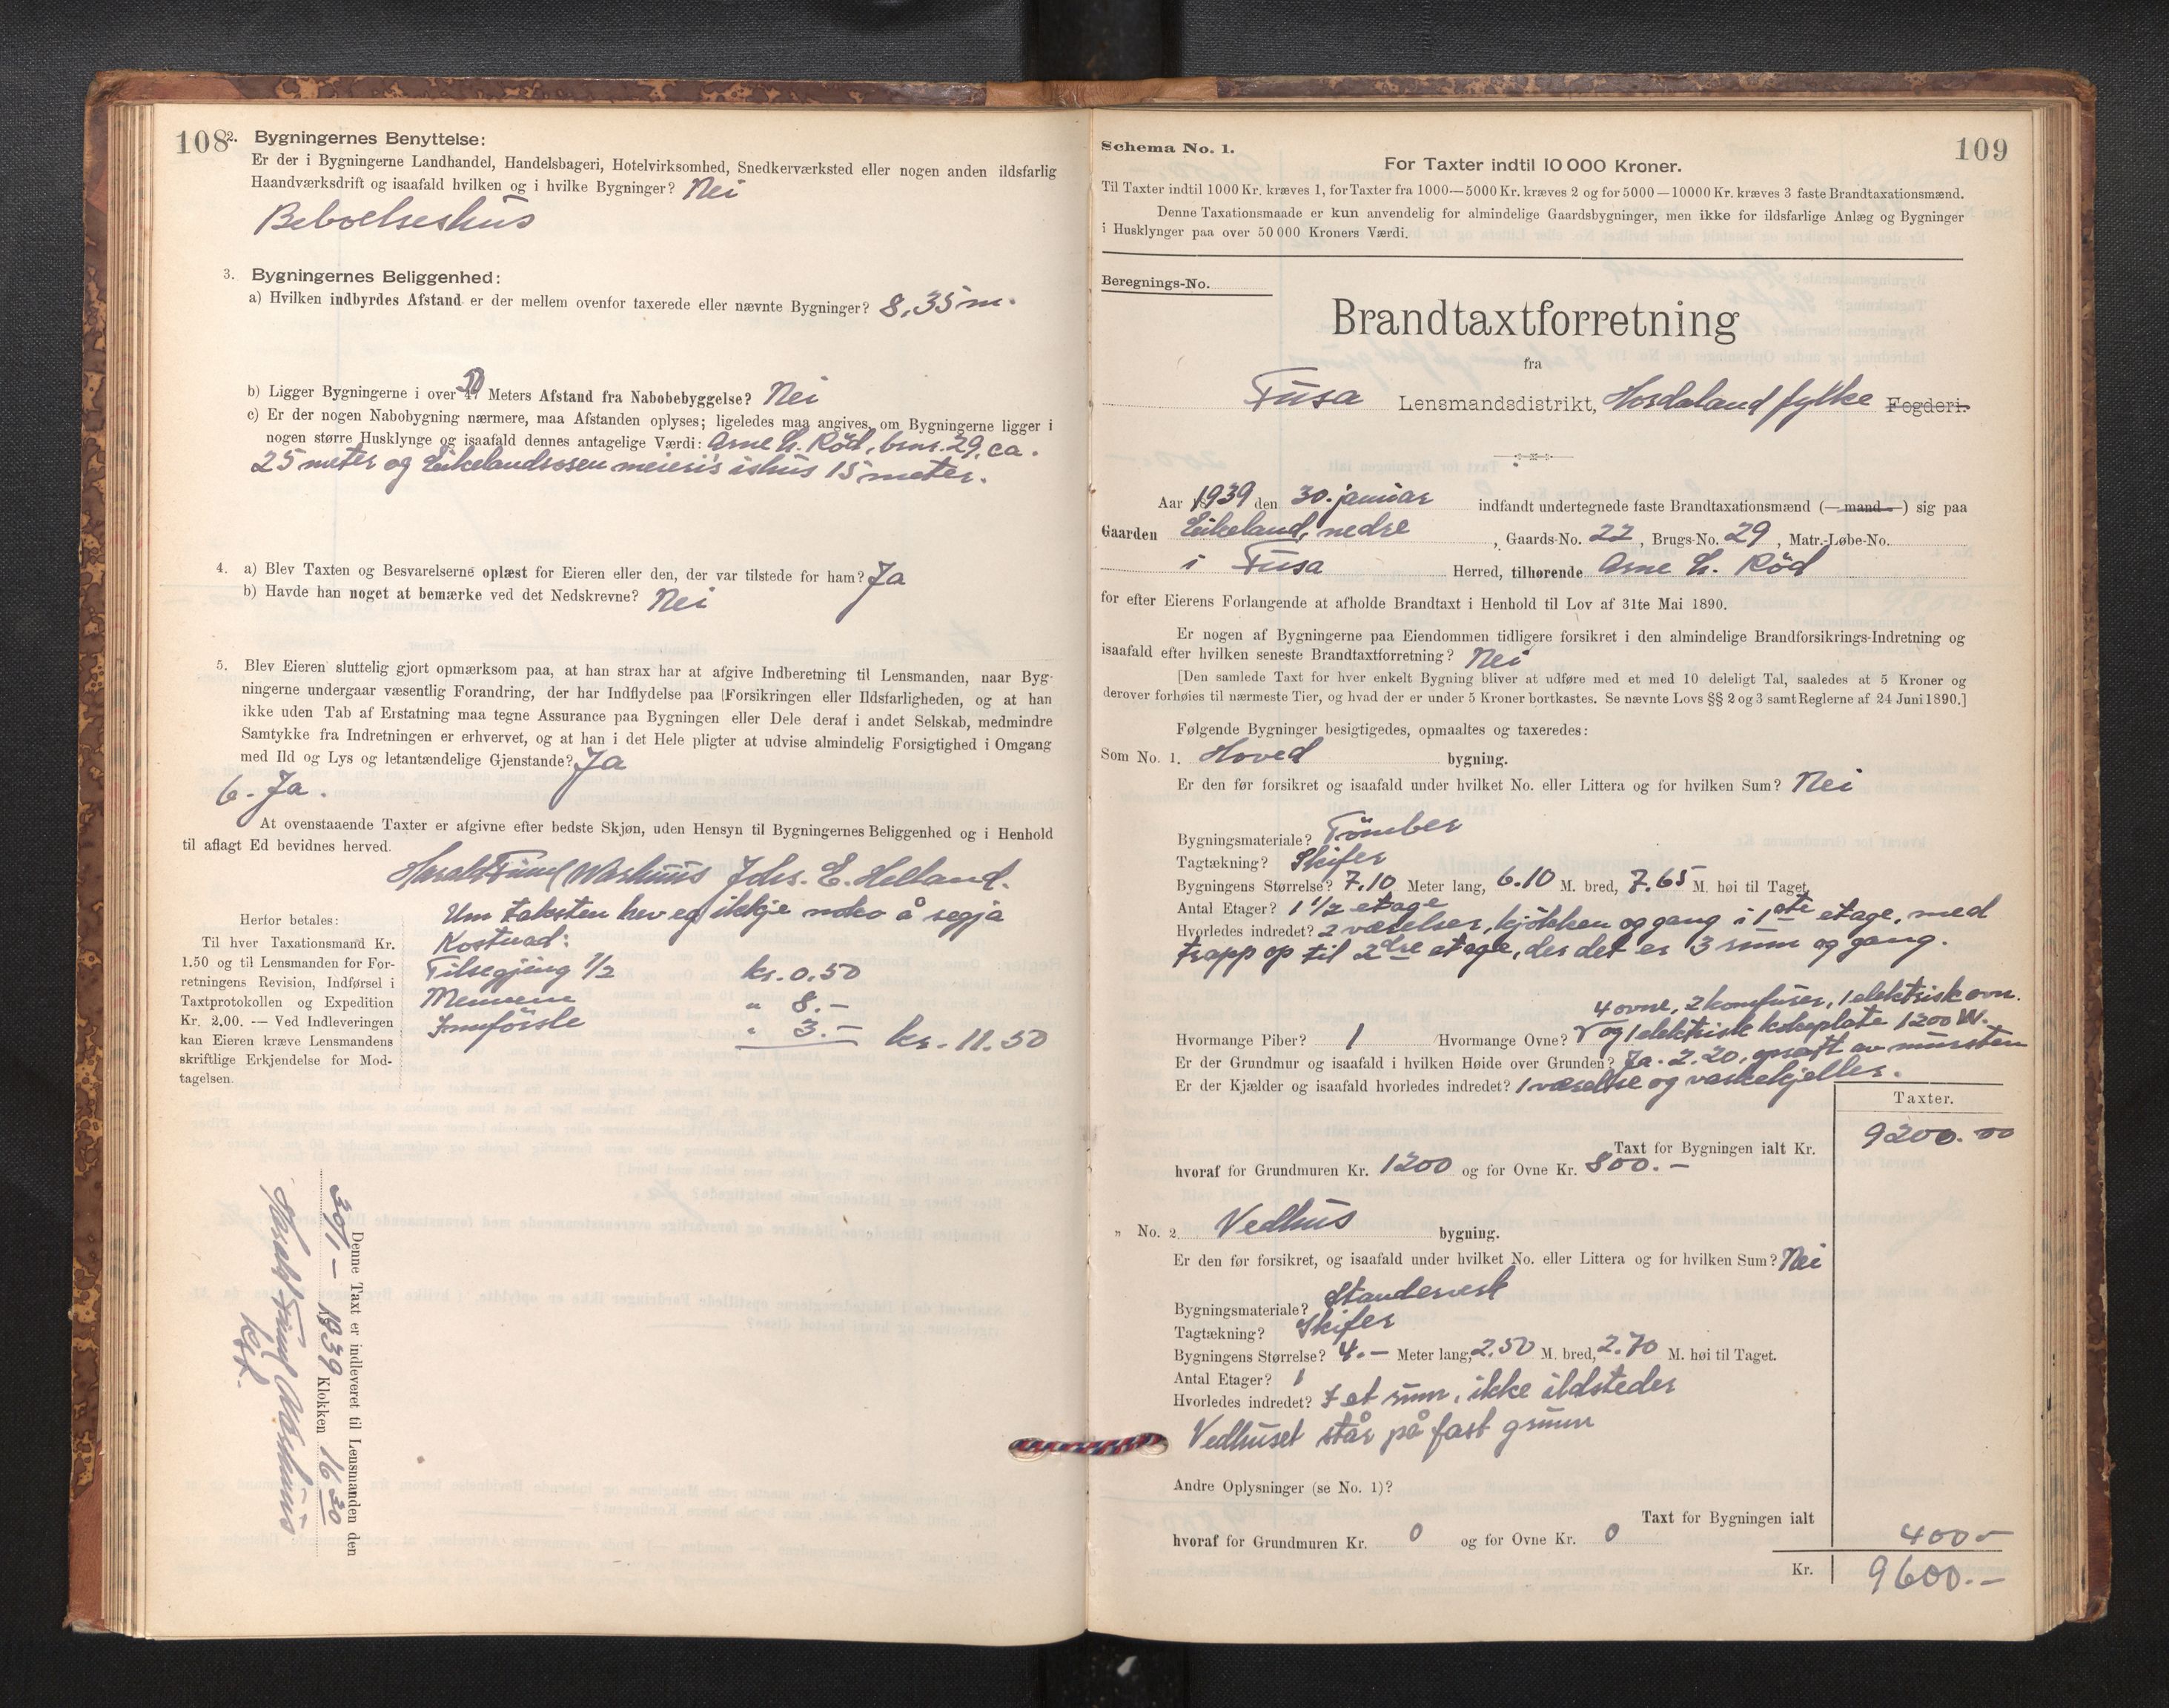 108
2. Bygningernes Benyttelse:
Er der i Bygningerne Landhandel, Handelsbageri, Hotelvirksomhed, Snedkerværksted eller nogen anden ildsfarlig
Haandværksdrift og isaafald hvilken og i hvilke Bygninger? Nei
Beboelseshus
3. Bygningernes Beliggenhed:
a) Hvilken indbyrdes Afstand er der mellem ovenfor taxerede eller nævnte Bygninger? 8,35 m.
b) Ligger Bygningerne i over Meters Afstand fra Nabobebyggelse? Nei
c) Er der nogen Nabobygning nærmere, maa Afstanden oplyses; ligeledes maa angives, om Bygningerne ligger i
nogen større Husklynge og isaafald dennes antagelige Værdi: Arne L. Röd, brnr. 29, ca.
25 meter og Eikelandsosen meieri's ishus 15 meter.
4. a) Blev Taxten og Besvarelserne oplæst for Eieren eller den, der var tilstede for ham? Ja
b) Havde han noget at bemærke ved det Nedskrevne? Nei
5. Blev Eieren sluttelig gjort opmærksom paa, at han strax har at afgive Indberetning til Lensmanden, naar Byg-
ningerne undergaar væsentlig Forandring, der har Indflydelse paa Forsikringen eller Ildsfarligheden, og at han
ikke uden Tab af Erstatning maa tegne Assurance paa Bygningen eller Dele deraf i andet Selskab, medmindre
Samtykke fra Indretningen er erhvervet, og at han i det Hele pligter at udvise almindelig Forsigtighed i Omgang
med Ild og Lys og letantændelige Gjenstande? Ja
6. Ja.
At ovenstaaende Taxter er afgivne efter bedste Skjøn, uden Hensyn til Bygningernes Beliggenhed og i Henhold
til aflagt Ed bevidnes herved.
Johs. E. Helland.
Um taksten hev eg ikkje noko å segja
Kostnad:
Tilsegjing 1/2 kr. 0.50
Mennene " 8.-
Innførsle " 3.- kr. 11.50
Herfor betales:
Til hver Taxationsmand Kr.
1.50 og til Lensmanden for For-
retningens Revision, Indførsel i
Taxtprotokollen og Expedition
Kr. 2.00. — Ved Indleveringen
kan Eieren kræve Lensmandens
skriftlige Erkjendelse for Mod-
tagelsen.
Denne Taxt er indleveret til Lensmanden den
30/1 - 1939 Klokken 16 30
109
Schema No. 1.
For Taxter indtil 10 000 Kroner.
Til Taxter indtil 1000 Kr. kræves 1, for Taxter fra 1000—5000 Kr. kræves 2 og for 5000—10000 Kr. kræves 3 faste Brandtaxationsmænd.
Denne Taxationsmaade er kun anvendelig for almindelige Gaardsbygninger, men ikke for ildsfarlige Anlæg og Bygninger
i Husklynger paa over 50 000 Kroners Værdi.
Beregnings-No.
Brandtaxtforretning
fra
Fusa Lensmandsdistrikt, Hordaland fylke Fogderi.
Aar 1939 den 30. januar indfandt undertegnede faste Brandtaxationsmænd (— mand —) sig paa
Gaarden Eikeland, nedre, Gaards-No. 22, Brugs-No. 29, Matr.-Løbe-No.
i Fusa Herred, tilhørende Arne L. Röd
for efter Eierens Forlangende at afholde Brandtaxt i Henhold til Lov af 31te Mai 1890.
Er nogen af Bygningerne paa Eiendommen tidligere forsikret i den almindelige Brandforsikrings-Indretning og
isaafald efter hvilken seneste Brandtaxtforretning? Nei
[Den samlede Taxt for hver enkelt Bygning bliver at udføre med et med 10 deleligt Tal, saaledes at 5 Kroner og
derover forhøies til nærmeste Tier, og hvad der er under 5 Kroner bortkastes. Se nævnte Lovs §§ 2 og 3 samt Reglerne af 24 Juni 1890.]
Følgende Bygninger besigtigedes, opmaaltes og taxeredes:
Som No. 1. Hoved bygning.
Er den før forsikret og isaafald under hvilket No. eller Littera og for hvilken Sum? Nei
Bygningsmateriale? Tömber
Tagtækning? Skifer
Bygningens Størrelse? 7.10 Meter lang, 6.10 M. bred, 7.65 M. høi til Taget.
Antal Etager? 1 1/2 etage
Hvorledes indredet? 2 værelser, kjökken og gang i 1ste etage, med
trapp op til 2dre etage, der det er 3 rum og gang.
4 ovne, 2 komfurer, 1 elektrisk ovn.
Hvormange Piber? 1 Hvormange Ovne? og 1 elektrisk kokeplate 1200 W.
Er der Grundmur og isaafald i hvilken Høide over Grunden? Ja. 2.20, opsatt av mursten
Er der Kjælder og isaafald hvorledes indredet? 1 værelse og vaskekjeller.
Taxter.
Taxt for Bygningen ialt Kr. 9200.00
hvoraf for Grundmuren Kr. 1200 og for Ovne Kr. 800.-
" No. 2. Vedhus bygning.
Er den før forsikret, og isaafald under hvilket No. eller Littera og for hvilken Sum? Nei
Bygningsmateriale? Standerverk
Tagtækning? Skifer
Bygningens Størrelse? 4.- Meter lang, 2.50 M. bred, 2.70 M. høi til Taget.
Antal Etager? 1
Hvorledes indredet? I et rum, ikke ildsteder
Vedhuset står på fast grunn
Andre Oplysninger (se No. 1)?
Taxt for Bygningen ialt
hvoraf for Grundmuren Kr. 0 og for Ovne Kr. 0 400-
Kr. 9600.-